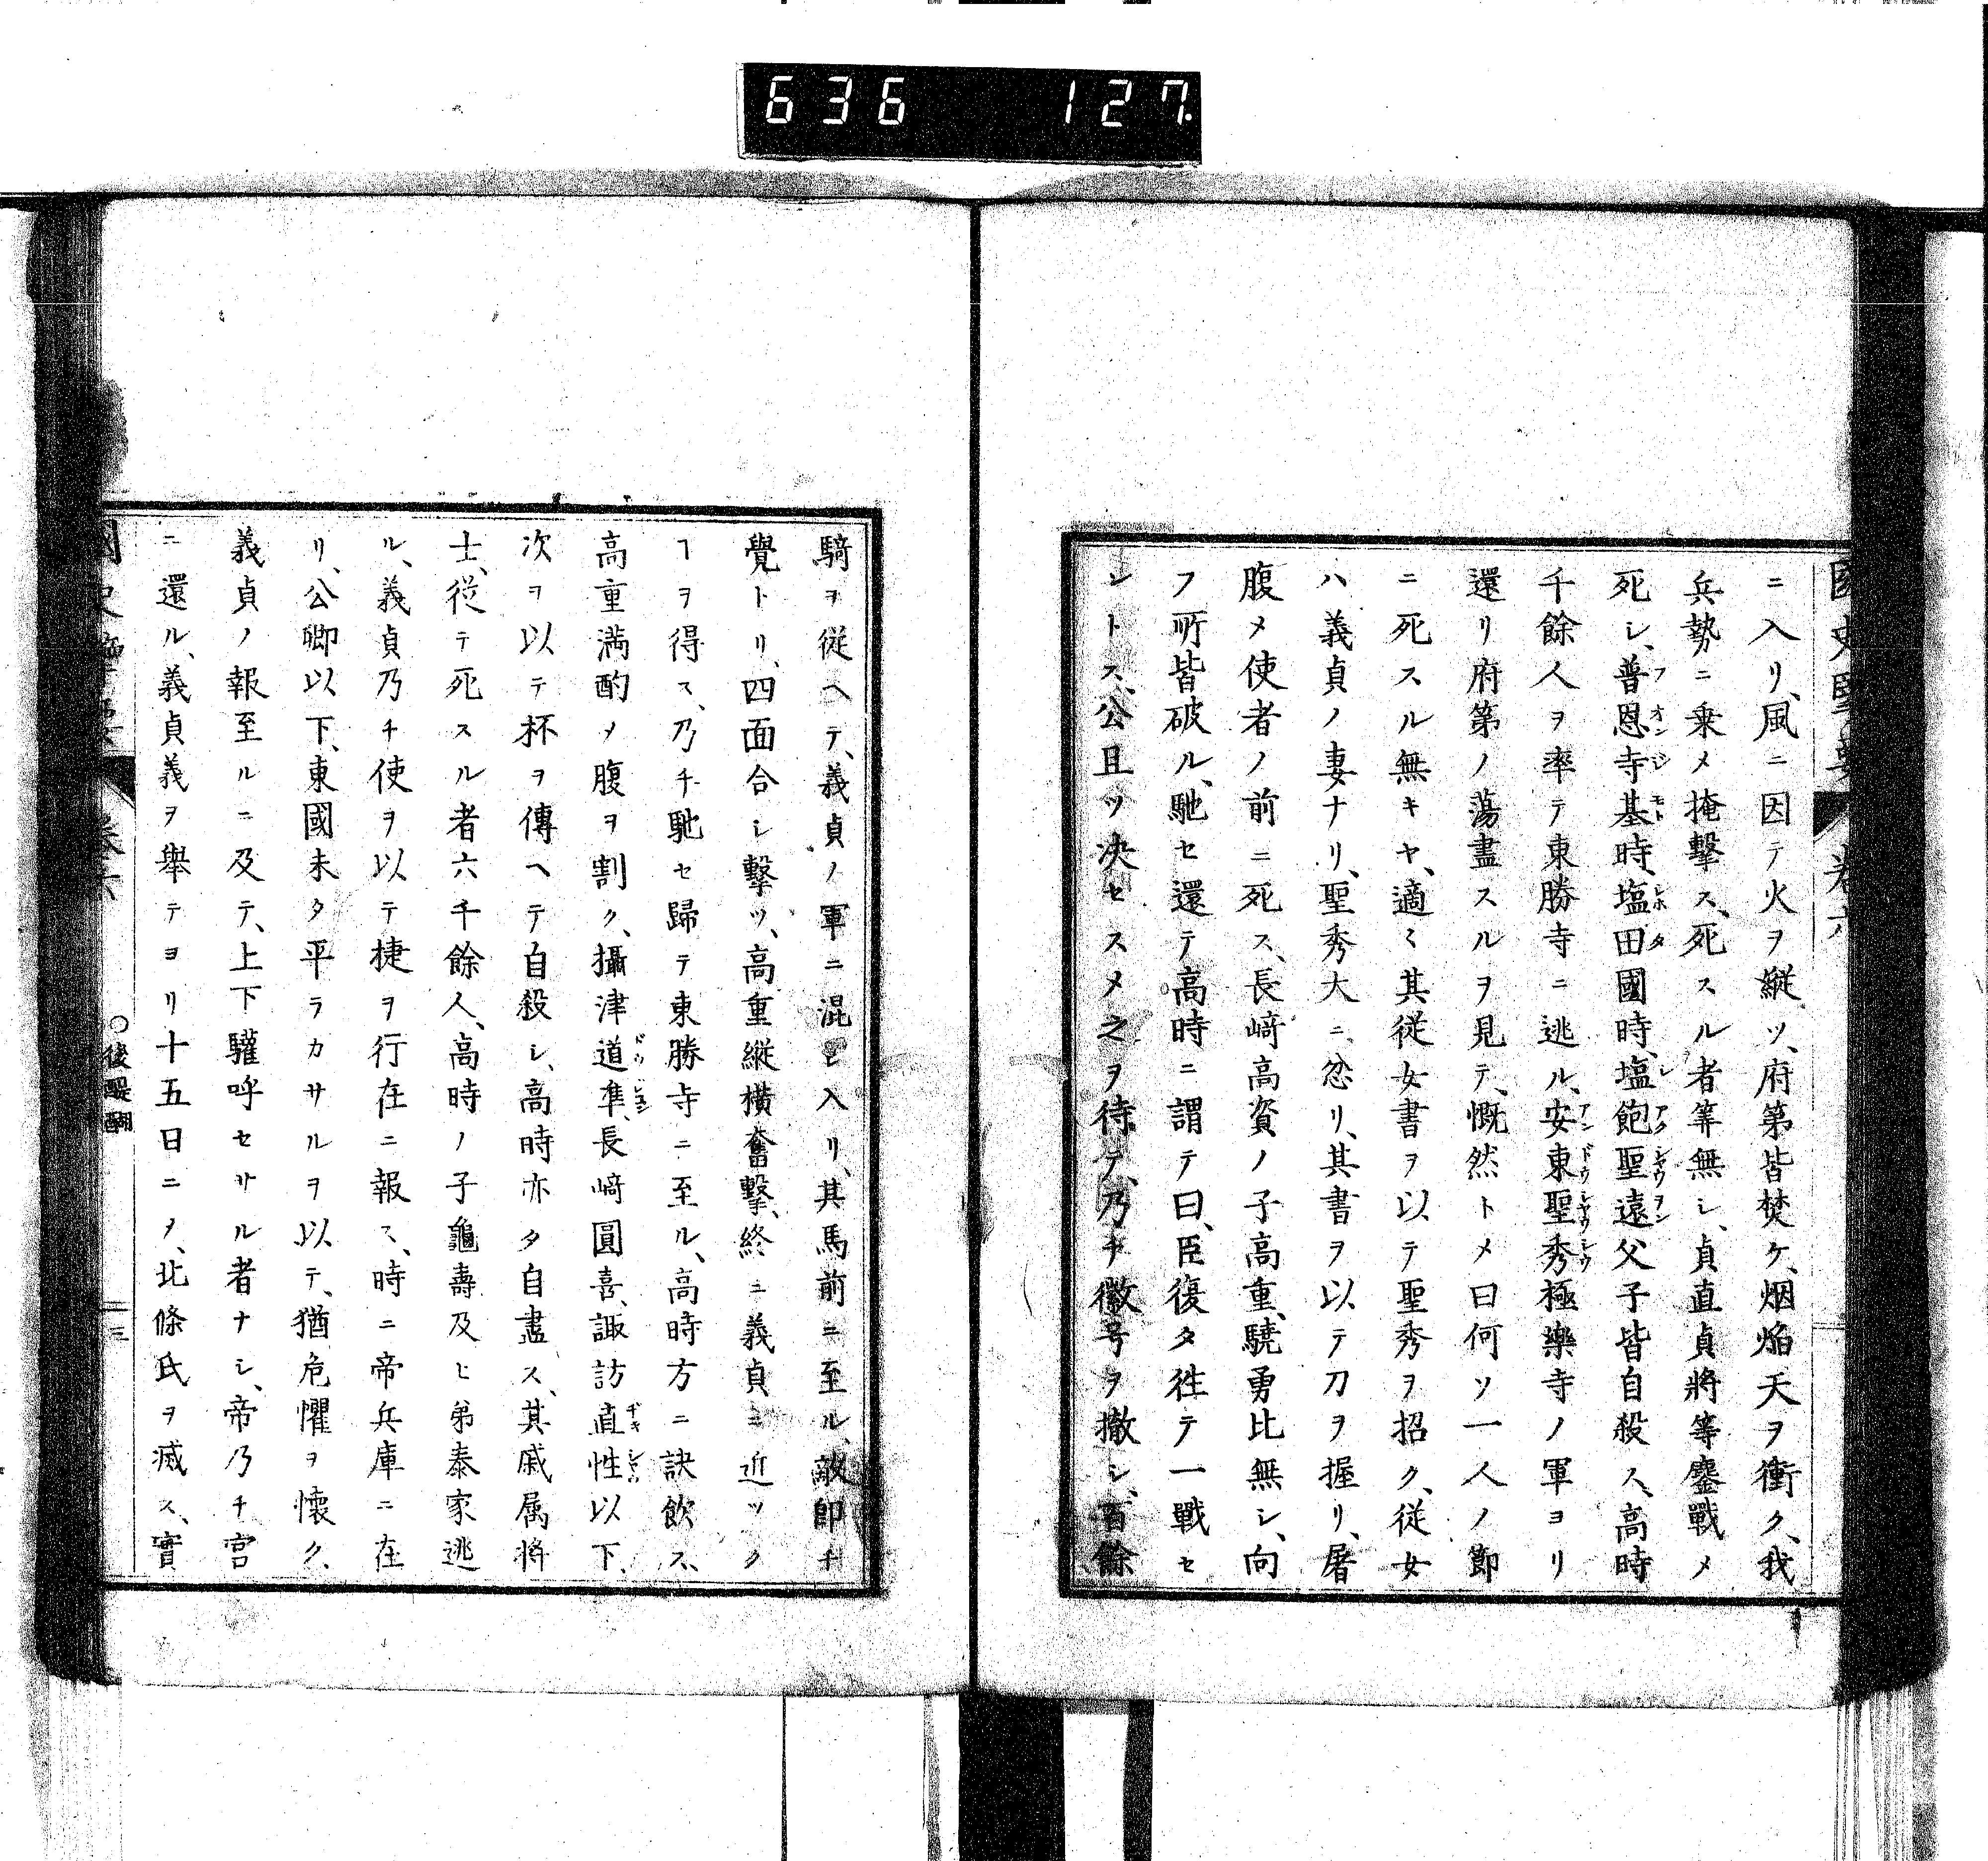 636 127
ニ入リ、風ニ因テ火ヲ縦ツ、府第皆焚ケ、烟焔天ヲ衝ク、我
兵勢ニ乗メ掩撃ス、死スル者等無シ、貞直貞將等鏖戰メ
死シ、普恩寺基時、塩田國時、塩飽聖遠父子皆自殺ス、高時
千餘人ヲ率テ東勝寺ニ逃ル、安東聖秀極樂寺ノ軍ヨリ
還リ府第ノ蕩盡スルヲ見テ、慨然トメ曰何ソ一人ノ節
ニ死スル無キヤ、適〻其従女書ヲ以テ聖秀ヲ招ク、従女
ハ義貞ノ妻ナリ、聖秀大ニ忿リ、其書ヲ以テ刀ヲ握リ、屠
腹メ使者ノ前ニ死ス、長﨑高資ノ子高重、驍勇比無シ、向
フ所皆破ル、馳セ還テ高時ニ謂テ曰、臣復タ徃テ一戰セ
ントス、公且ツ决セスメ之ヲ待テ、乃チ徽号ヲ撤シ、百餘
騎ヲ従ヘテ、義貞ノ軍ニ混シ入リ、其馬前ニ至ル、敵即チ
覺トリ、四面合シ擊ツ、高重縦横奮擊、終ニ義貞ニ近ツク
ヿヲ得ス、乃チ馳セ歸テ東勝寺ニ至ル、高時方ニ訣飲ス、
高重満酌メ腹ヲ割ク、攝津道凖、長﨑圓喜、諏訪直性以下、
次ヲ以テ杯ヲ傳ヘテ自殺シ、高時亦タ自盡ス、其戚属將
士、従テ死スル者六千餘人、高時ノ子龜壽及ヒ弟泰家逃
ル、義貞乃チ使ヲ以テ捷ヲ行在ニ報ス、時ニ帝兵庫ニ在
リ、公卿以下、東國未タ平ラカサルヲ以テ、猶危懼ヲ懐ク、
義貞ノ報至ルニ及テ、上下驩呼セサル者ナシ、帝乃チ宮
ニ還ル、義貞義ヲ舉テヨリ十五日ニメ、北條氏ヲ滅ス、實
○後醍醐